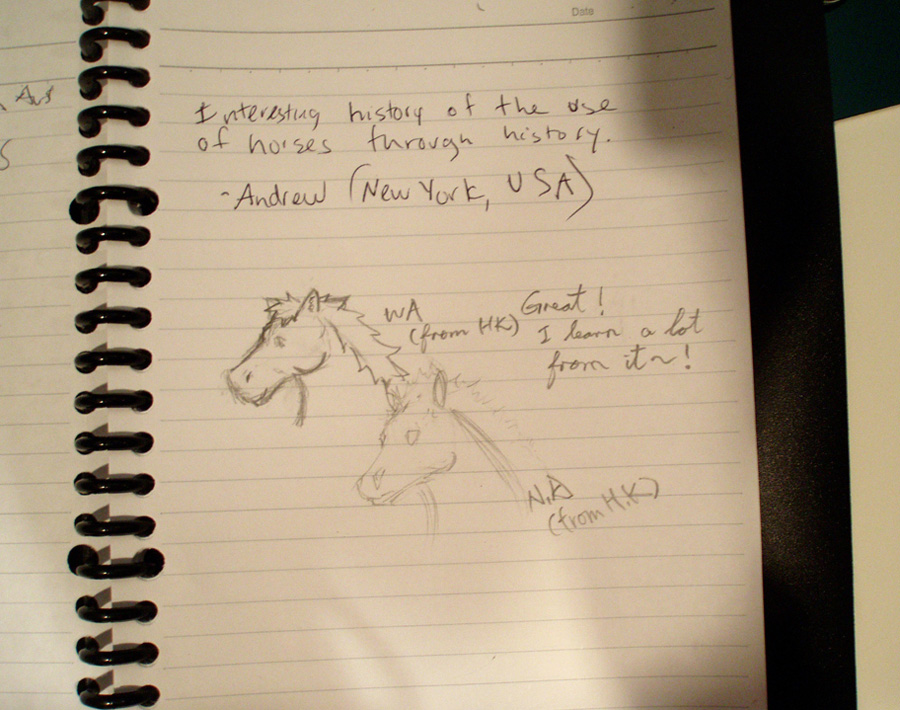 Date
Interesting history of the use
of horses through history.
- Andrew (New York, USA)
WA
(from HK)
Great!
I learn a lot
from it~!
(from H.K)